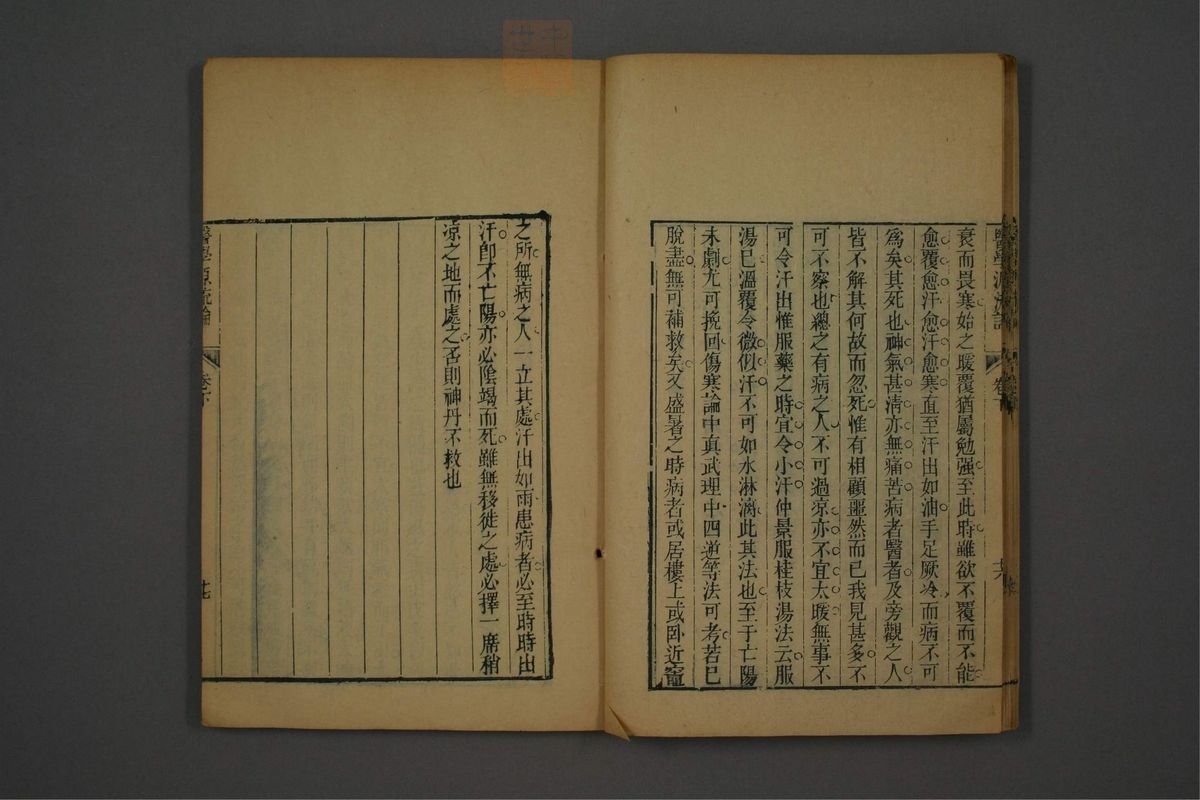 衰而畏寒始之暖覆猶屬勉强至此時雖欲不覆而不能
愈覆愈汗愈汗愈寒直至汗出如油手足厥冷而病不可
爲矣其死也神氣甚清亦無痛苦病者醫者及旁觀之人
皆不解其何故而忽死惟有相顧噩然而已我見甚多不
可不察也總之有病之人不可過涼亦不宜太暖無事不
可令汗出惟服藥之時宜令小汗仲景服桂枝湯法云服
湯已溫覆令微似汗不可如水淋漓此其法也至于亡陽
未劇尤可挽回傷寒論中真武理中四逆等法可考若已
脫盡無可補救矣又盛暑之時病者或居樓上或卧近竈
之所無病之人一立其處汗出如雨患病者必至時時出
汗卽不亡陽亦必陰竭而死雖無移徙之處必擇一席稍
涼之地而處之否則神丹不救也
醫學源流論
卷下
十七